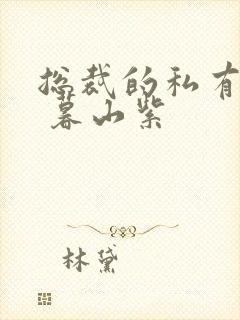 总裁的私有
暮山紫
林黛